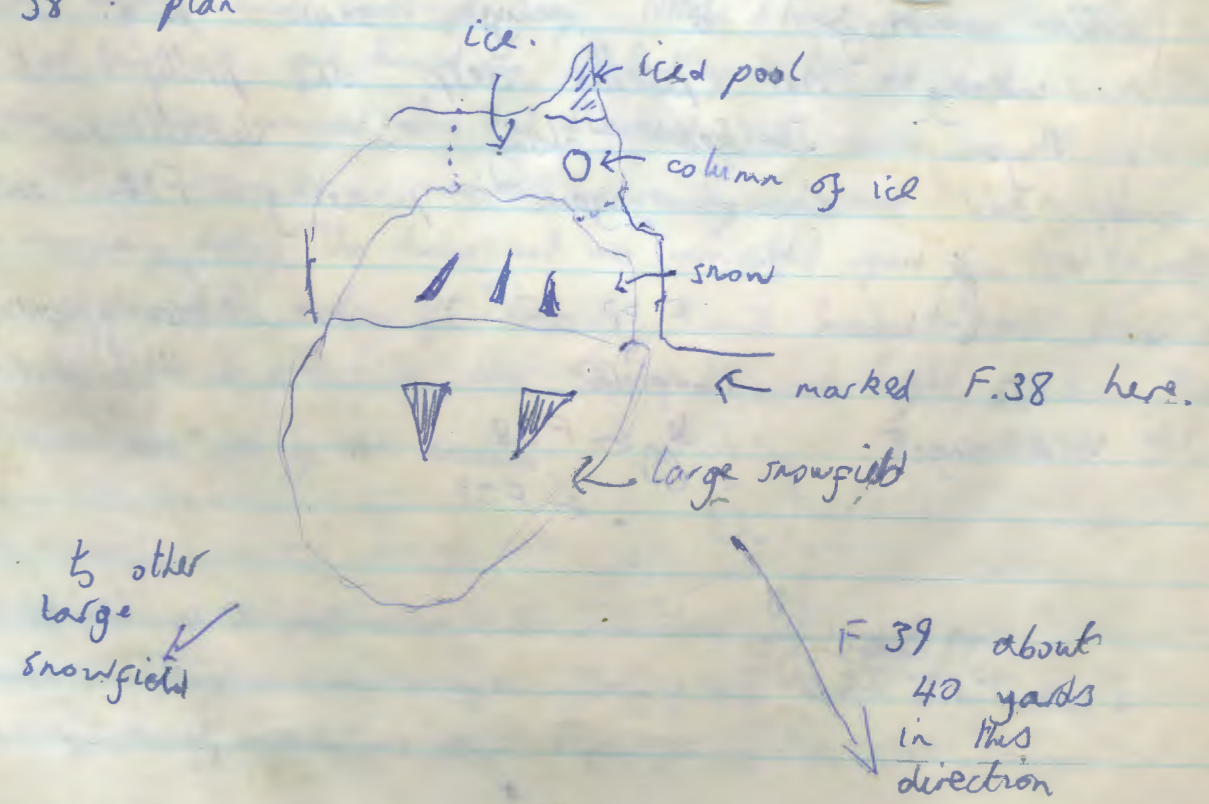 38 : plan
ice.
iced pool
column of ice
snow
marked F.38 here.
large snowfield
to other
large
snowfield
F 39 about
40 yards
in this
direction